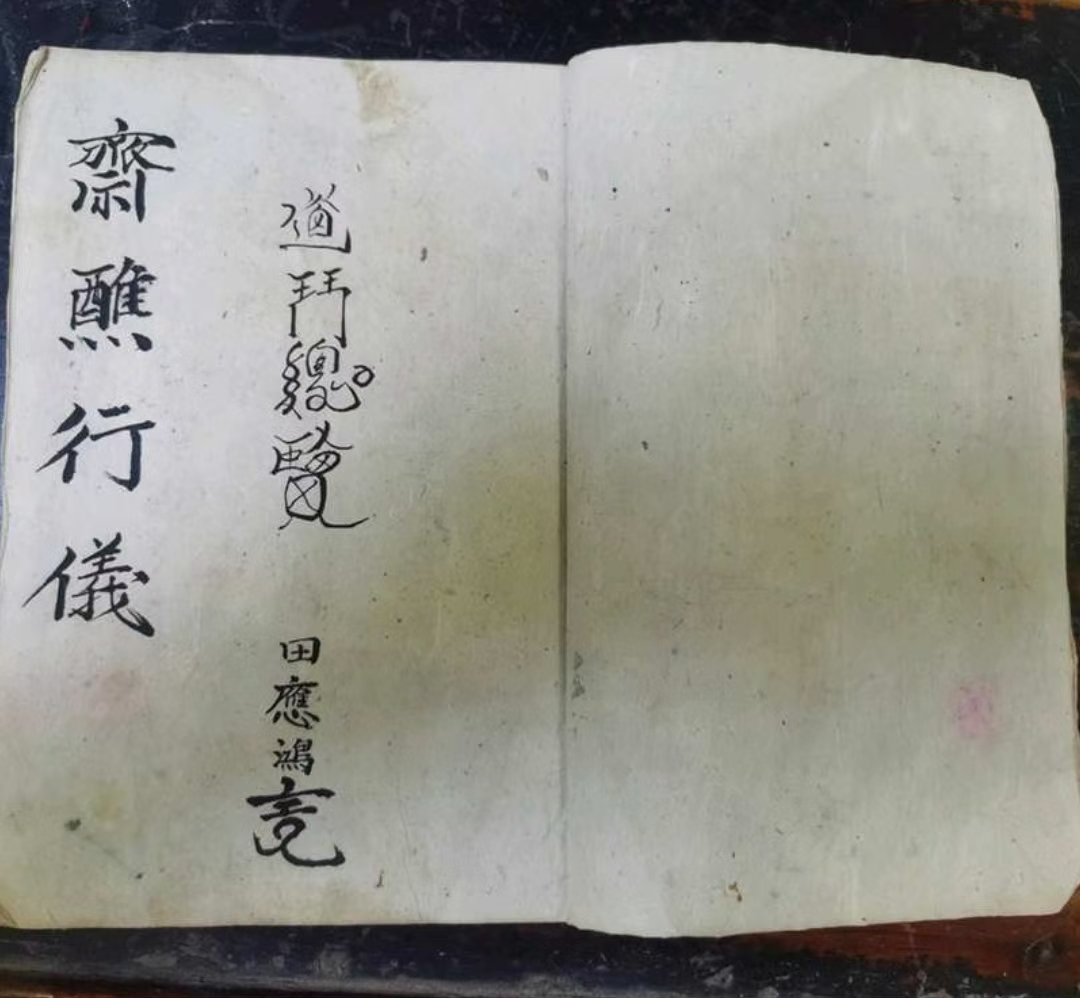 道門總覽 田應鴻
齋醮行儀